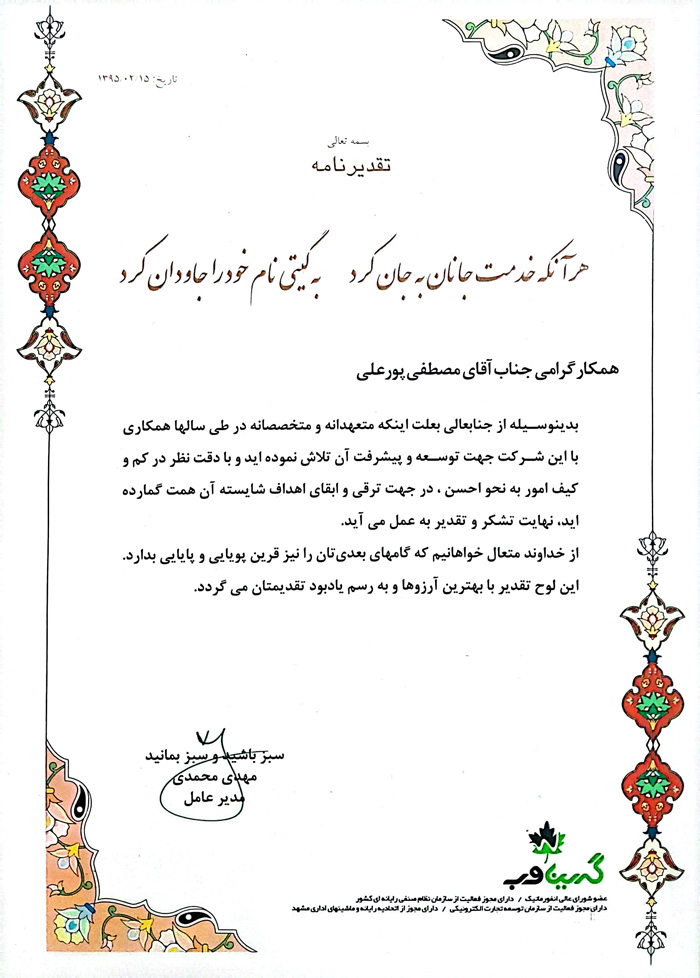 تاریخ: ۱۳۹۵/۰۲/۱۵
بسمه تعالی
تقدیرنامه
هرآنکه خدمت جانان به جان کرد به گیتی نام خود را جاودان کرد
همکار گرامی جناب آقای مصطفی پورعلی
بدینوسیله از جنابعالی بعلت اینکه متعهدانه و متخصصانه در طی سالها همکاری
با این شرکت جهت توسعه و پیشرفت آن تلاش نموده اید و با دقت نظر در کم و
کیف امور به نحو احسن ، در جهت ترقی و ابقای اهداف شایسته آن همت گمارده
اید، نهایت تشکر و تقدیر به عمل می آید.
از خداوند متعال خواهانیم که گامهای بعدی‌تان را نیز قرین پویایی و پایایی بدارد.
این لوح تقدیر با بهترین آرزوها و به رسم یادبود تقدیمتان می گردد.
سبز باشید و سبز بمانید
مهدی محمدی
مدیر عامل
گرین‌وب
عضو شورای عالی انفورماتیک / دارای مجوز فعالیت از سازمان نظام صنفی رایانه ای کشور
دارای مجوز فعالیت از سازمان توسعه تجارت الکترونیکی / دارای مجوز از اتحادیه رایانه و ماشینهای اداری مشهد